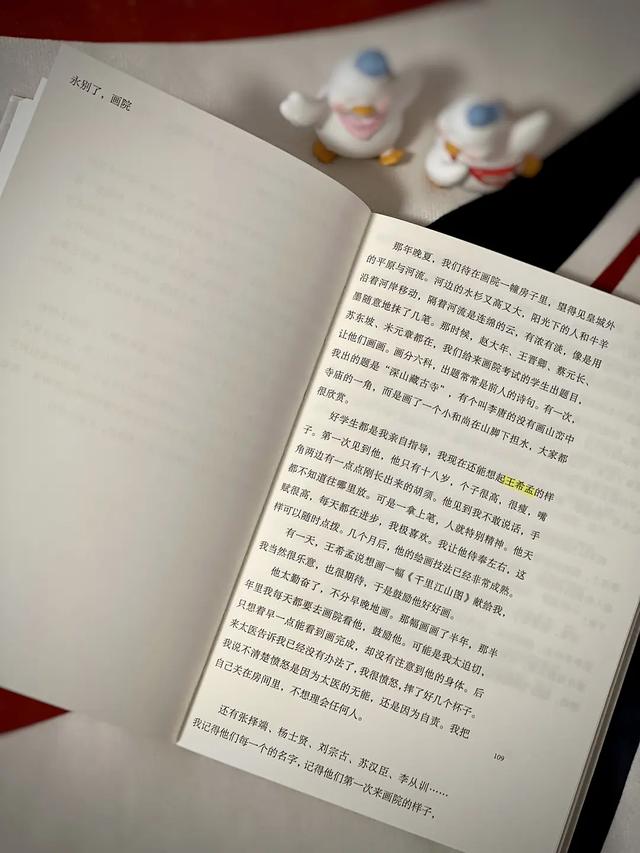 永别了，画院
那年晚夏，我们待在画院一幢房子里，望得见皇城外
的平原与河流。河边的水杉又高又大，阳光下的人和牛羊
沿着河岸移动，隔着河流是连绵的云，有浓有淡，像是用
墨随意地抹了几笔。那时候，赵大年、王晋卿、蔡元长、
苏东坡、米元章都在，我们给来画院考试的学生出题目，
让他们画画。画分六科，出题常常是前人的诗句。有一次，
我出的题是“深山藏古寺”，有个叫李唐的没有画山峦中
寺庙的一角，而是画了一个小和尚在山脚下担水，大家都
很欣赏。
好学生都是我亲自指导，我现在还能想起王希孟的样
子。第一次见到他，他只有十八岁，个子很高，很瘦，嘴
角两边有一点点刚长出来的胡须。他见到我不敢说话，手
都不知道往哪里放。可是一拿上笔，人就特别精神。他天
赋很高，每天都在进步，我极喜欢。我让他侍奉左右，这
样可以随时点拨。几个月后，他的绘画技法已经非常成熟。
有一天，王希孟说想画一幅《千里江山图》献给我，
我当然很乐意，也很期待，于是鼓励他好好画。
他太勤奋了，不分早晚地画。那幅画画了半年，那半
年里我每天都要去画院看他，鼓励他。可能是我太迫切，
只想着早一点能看到画完成，却没有注意到他的身体。后
来太医告诉我已经没有办法了，我很愤怒，摔了好几个杯子。
我说不清楚愤怒是因为太医的无能，还是因为自责。我把
自己关在房间里，不想理会任何人。
还有张择端、杨士贤、刘宗古、苏汉臣、李从训……
我记得他们每一个的名字，记得他们第一次来画院的样子，
109